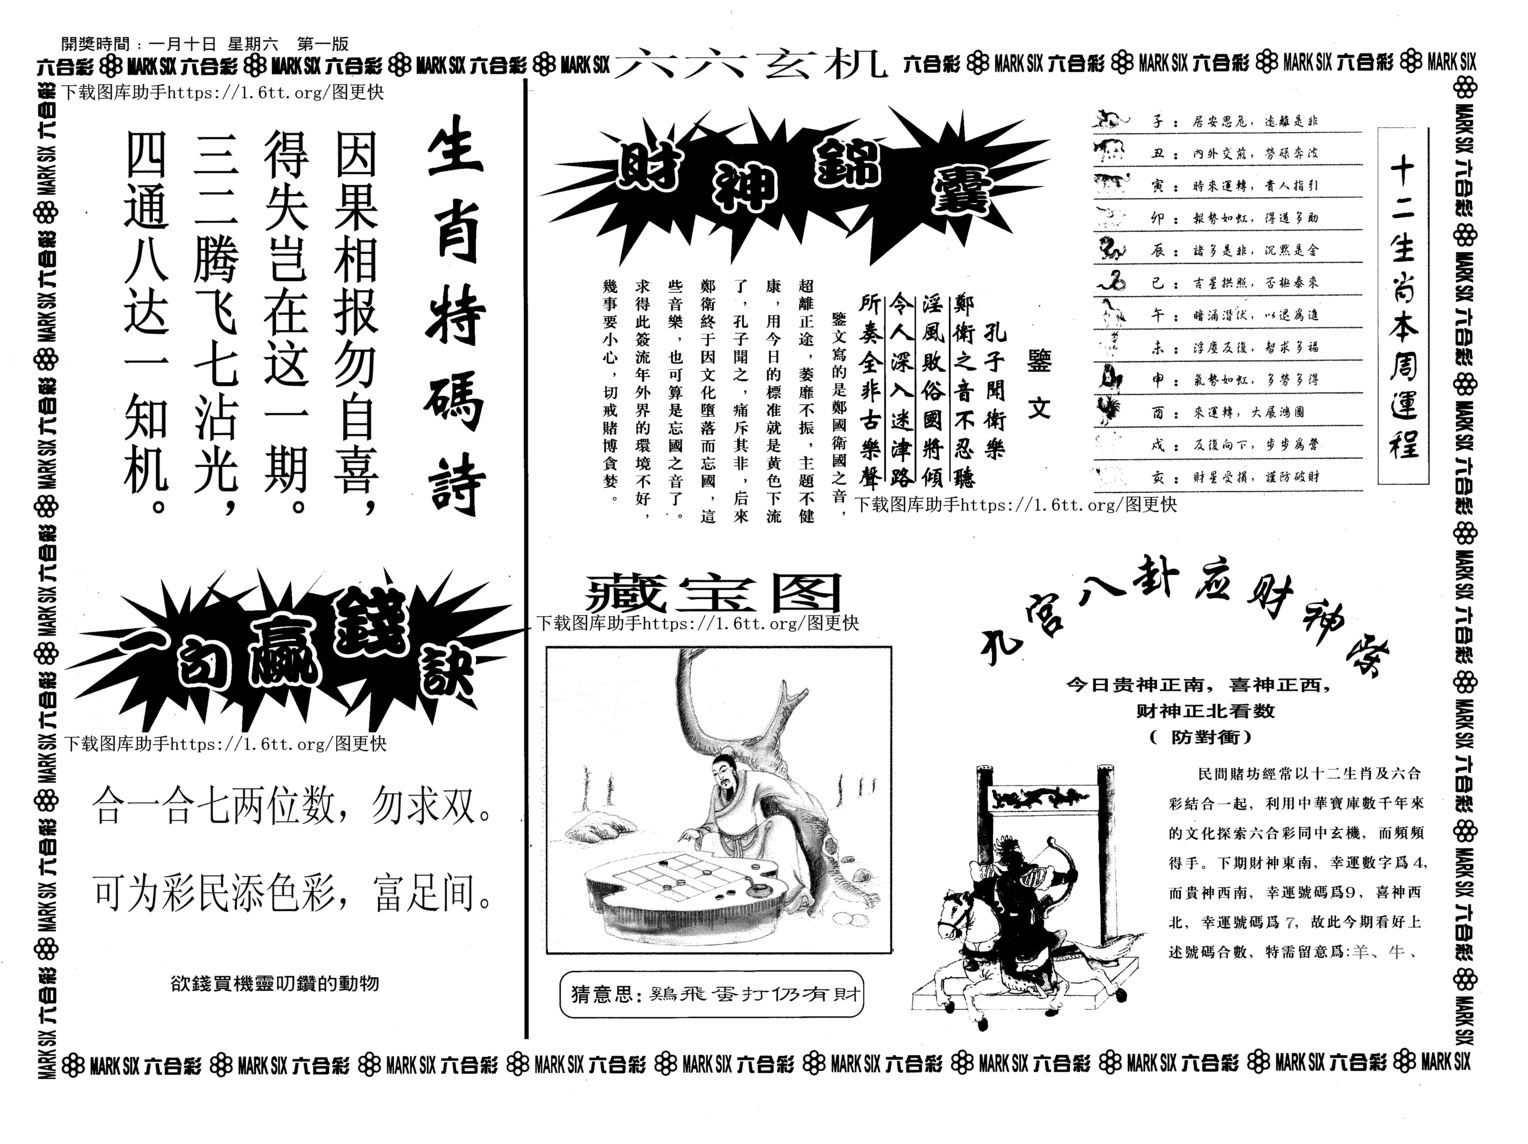 開獎時間：一月十日 星期六 第一版
六合彩 MARK SIX 六合彩 MARK SIX 六合彩 MARK SIX 六合彩 MARK SIX
六六玄机
六合彩 MARK SIX 六合彩 MARK SIX 六合彩 MARK SIX 六合彩 MARK SIX
下载图库助手https://1.6tt.org/图更快
生肖特碼詩
因果相报勿自喜，
得失岂在这一期。
三二腾飞七沾光，
四通八达一知机。
一句赢錢訣
下载图库助手https://1.6tt.org/图更快
合一合七两位数，勿求双。
可为彩民添色彩，富足间。
欲錢買機靈叨鑽的動物
財神錦囊
鑒文
孔子聞衛樂
鄭衛之音不忍聽
淫風敗俗國將傾
令人深入迷津路
所奏全非古樂聲
鑒文寫的是鄭國衛國之音，
超離正途，萎靡不振，主題不健
康，用今日的標准就是黄色下流
了，孔子聞之，痛斥其非，后來
鄭衛終于因文化墮落而忘國，這
些音樂，也可算是忘國之音了。
求得此簽流年外界的環境不好，
幾事要小心，切戒賭博貪婪。
十二生肖本周運程
子：居安思危，遠離是非
丑：內外交煎，勞碌奔波
寅：時來運轉，貴人指引
卯：報勢如虹，得道多助
辰：諸多是非，沉默是金
巳：吉星拱照，否極泰來
午：暗涌潜伏，以退爲進
未：浮塵反復，智求多福
申：氣勢如虹，多勞多得
酉：來運轉，大展鴻圖
戌：反復向下，步步爲營
亥：財星受損，謹防破財
下载图库助手https://1.6tt.org/图更快
藏宝图
下载图库助手https://1.6tt.org/图更快
猜意思：鷄飛蛋打仍有財
孔宫八卦应财神
今日贵神正南，喜神正西，
财神正北看数
（ 防對衝）
民間賭坊經常以十二生肖及六合
彩結合一起，利用中華寶庫數千年來
的文化探索六合彩同中玄機，而頻頻
得手。下期財神東南，幸運數字爲4，
而貴神西南，幸運號碼爲9，喜神西
北，幸運號碼爲7，故此今期看好上
述號碼合數，特需留意爲:羊、牛、
MARK SIX 六合彩 MARK SIX 六合彩 MARK SIX 六合彩 MARK SIX 六合彩 MARK SIX 六合彩 MARK SIX 六合彩 MARK SIX 六合彩 MARK SIX 六合彩 MARK SIX 六合彩 MARK SIX